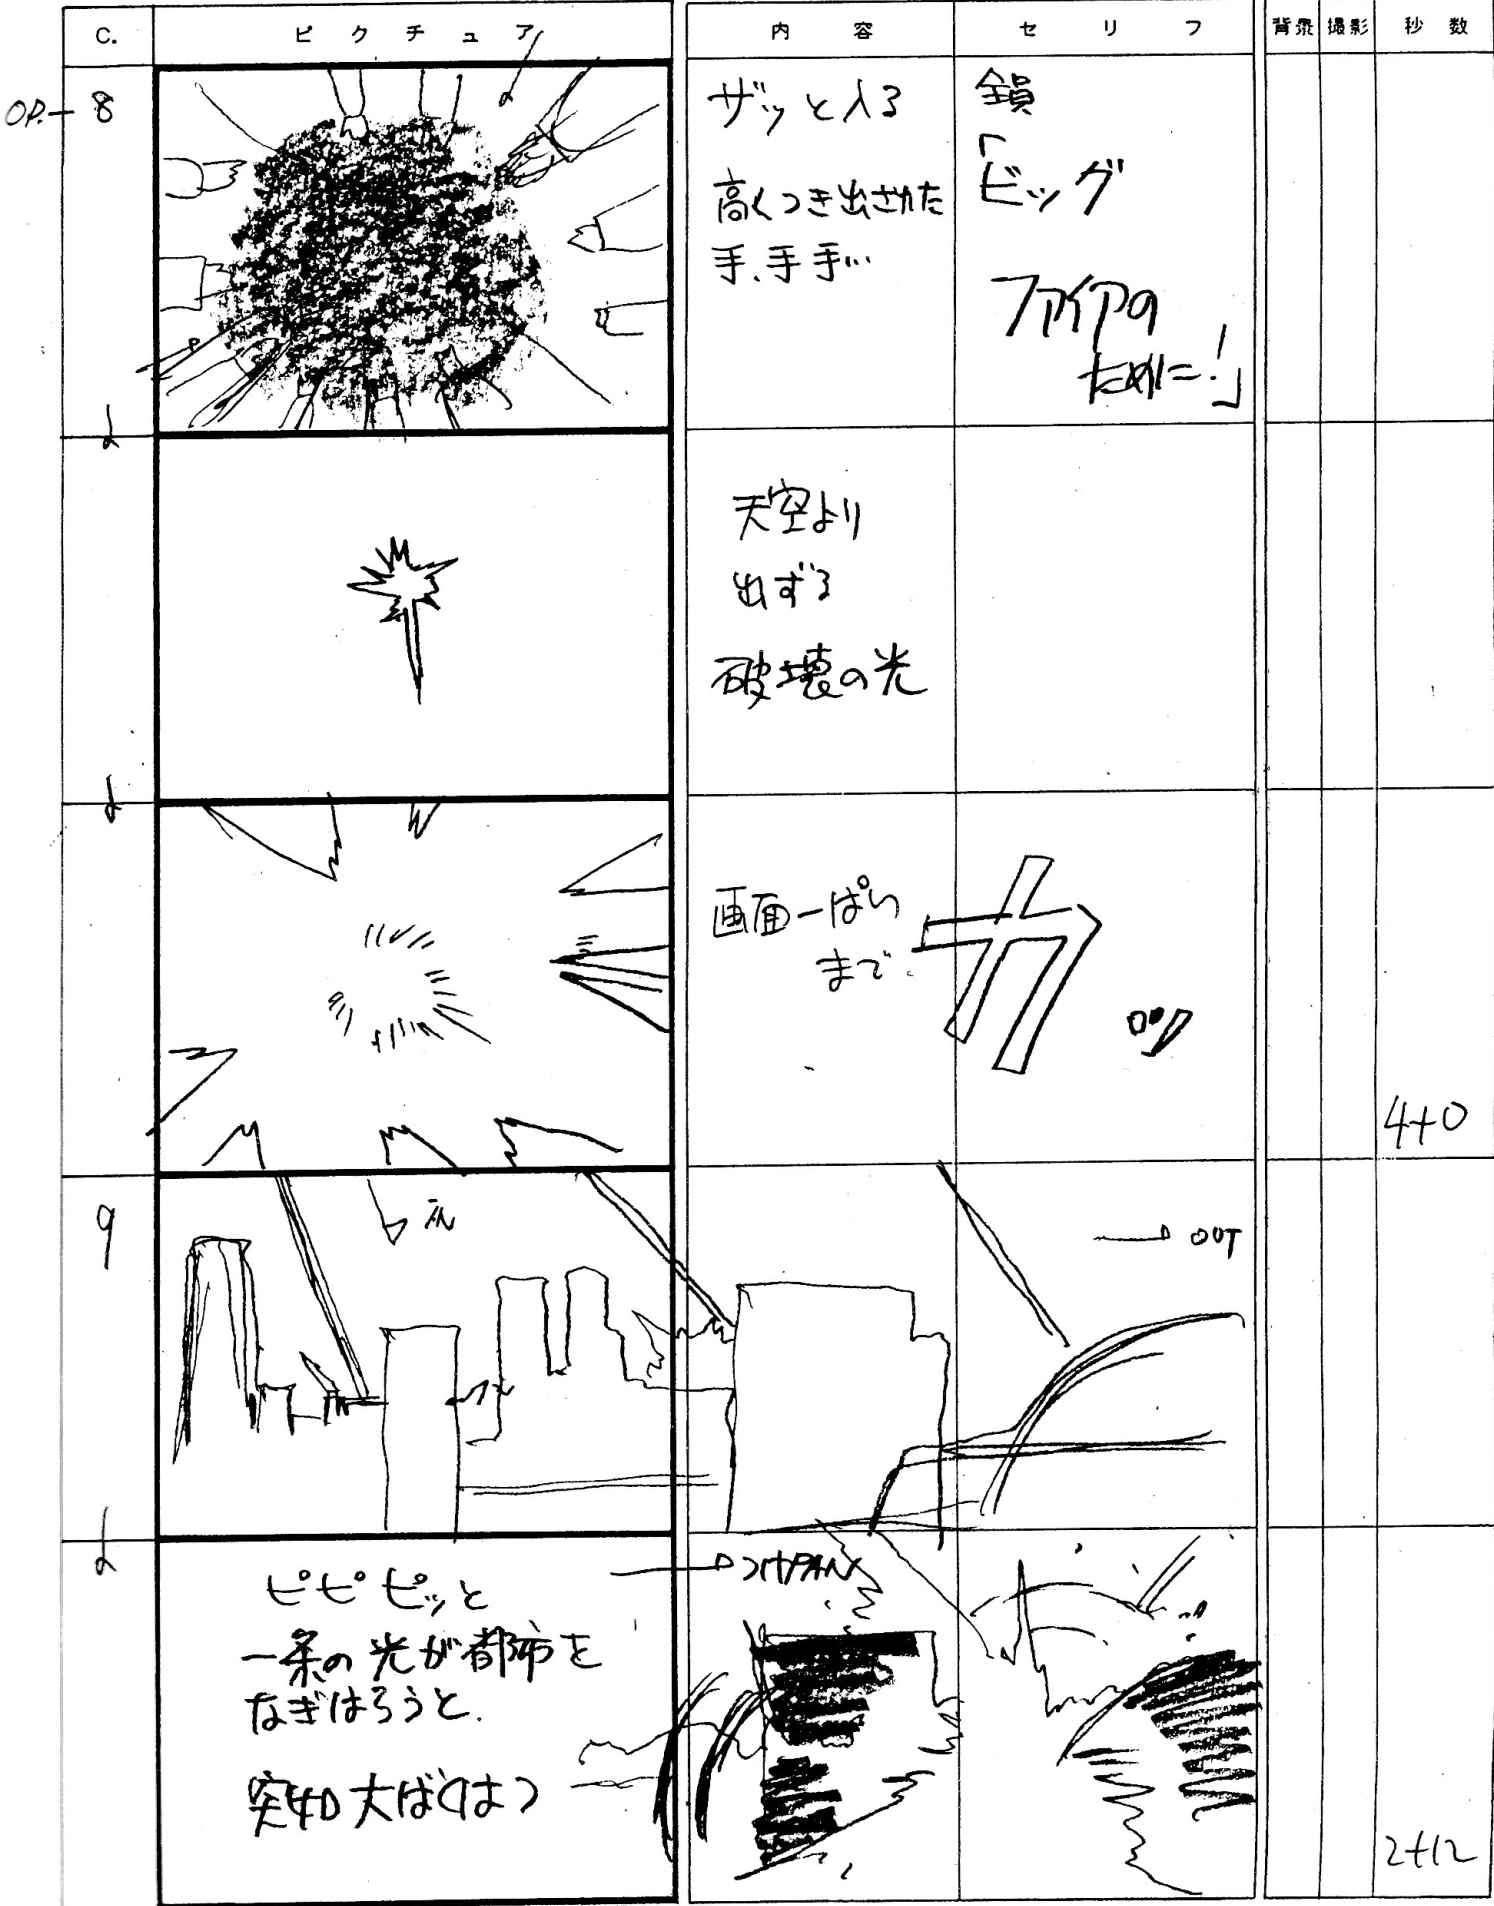 C. ピクチュア 内容 セリフ 背景 撮影 秒数
OP. 8
ザッと入る
高くつき出された
手、手手…
鎖
「ビッグ
ファイアの
ために!」
天空より
出ずる
破壊の光
画面一ぱい
まで
カッ
4+0
9
OUT
PAN
ピピピッと
一条の光が都市を
なぎはろうと、
突如大ばくはつ
2+12